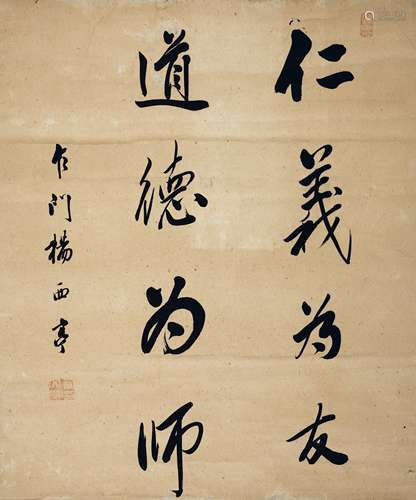 仁義為友
道德為師
石門楊西亭